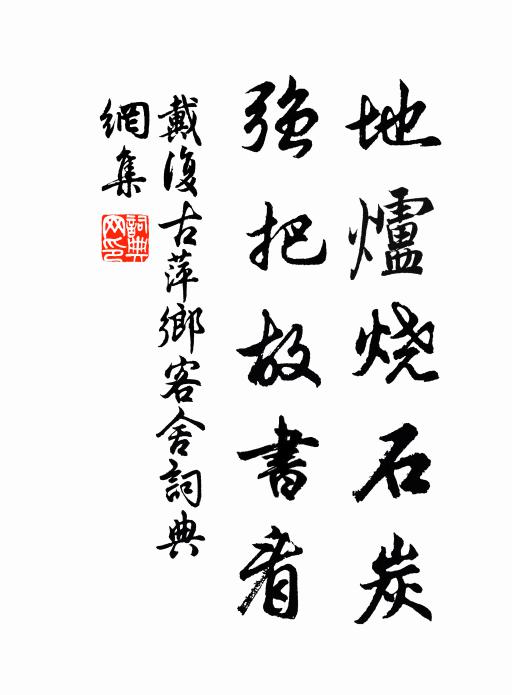 地爐烧石炭
强把故書看
戴復古萍鄉客舍詞典
網集
詞典网印